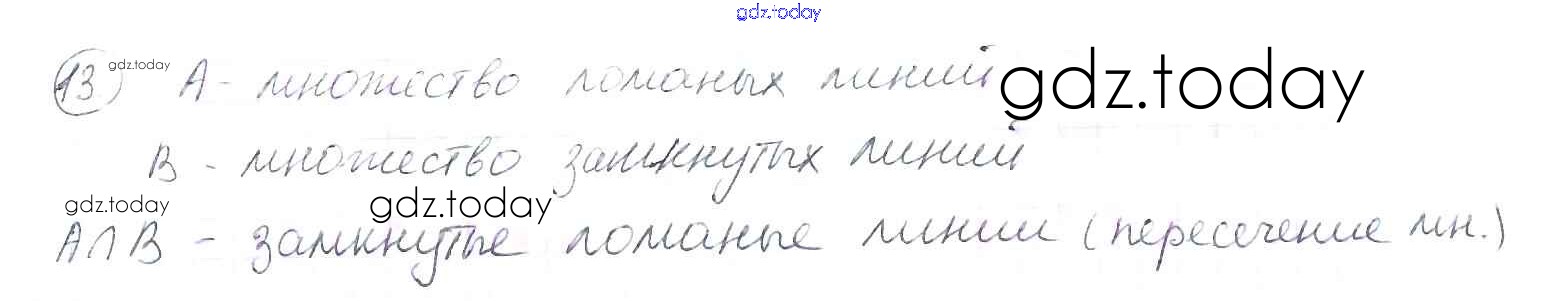 gdz.today
13 gdz.today А - множество ломаных линий gdz.today
В - множество замкнутых линий
gdz.today gdz.today
А∩В - замкнутые ломаные линии (пересечение мн.)